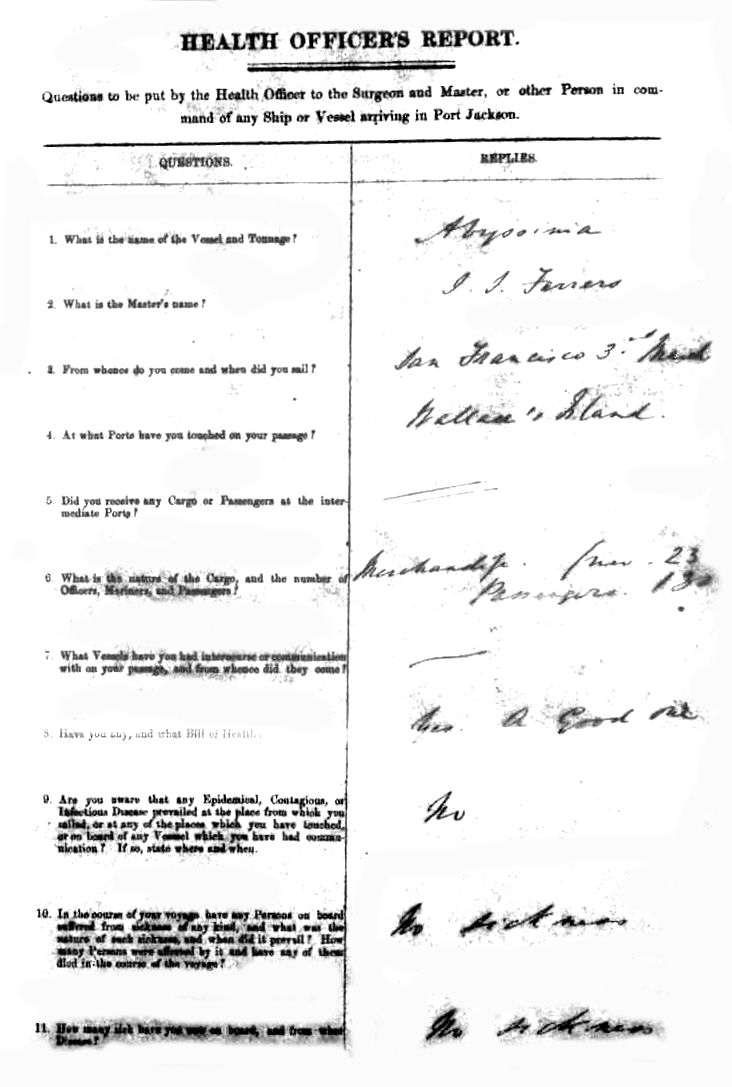 HEALTH OFFICER'S REPORT.
Questions to be put by the Health Officer to the Surgeon and Master, or other Person in com-
mand of any Ship or Vessel arriving in Port Jackson.
QUESTIONS.
REPLIES.
1. What is the name of the Vessel and Tonnage?
Abyssinia
2. What is the Master's name?
J. J. Ferrers
3. From whence do you come and when did you sail?
San Francisco 3rd March
4. At what Ports have you touched on your passage?
Wallace's Island.
5. Did you receive any Cargo or Passengers at the inter-
mediate Ports?
6. What is the nature of the Cargo, and the number of
Officers, Mariners, and Passengers?
Merchandise. 23
Passengers.
7. What Vessels have you had intercourse or communication
with on your passage, and from whence did they come?
8. Have you any, and what Bill of Health.
Yes A Good one
9. Are you aware that any Epidemical, Contagious, or
Infectious Disease prevailed at the place from which you
sailed, or at any of the places which you have touched,
or on board of any Vessel which you have had commu-
nication? If so, state where and when.
No
10. In the course of your voyage have any Persons on board
suffered from sickness of any kind, and what was the
nature of such sickness, and when did it prevail? How
many Persons were affected by it and have any of them
died in the course of the voyage?
No sickness
11. How many sick have you now on board, and from what
Disease?
No sickness